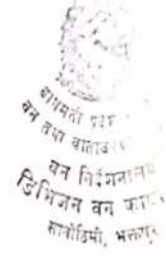 बागमती प्रदेश
वन तथा वातावरण
वन निर्देशनालय
डिभिजन वन कार्या
सानोठिमी, भक्तपुर